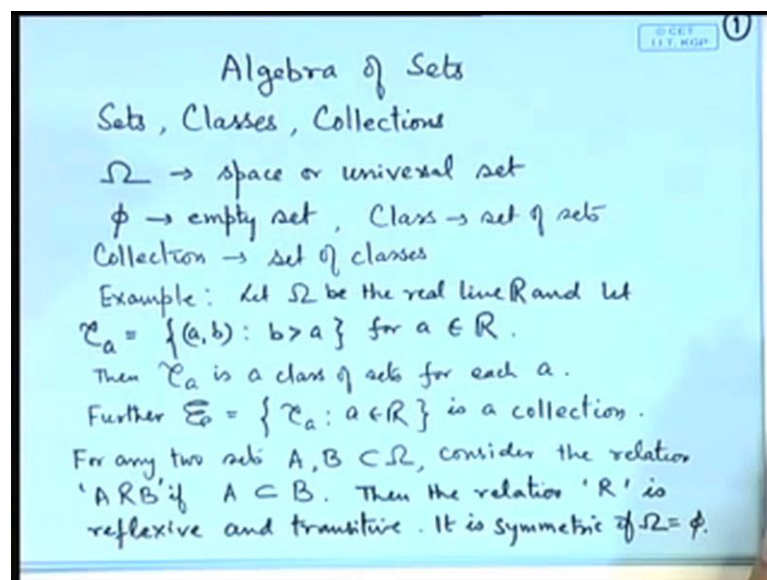 © CET
I.I.T. KGP
1
Algebra of Sets
Sets, Classes, Collections
Ω → space or universal set
ϕ → empty set, Class → set of sets
Collection → set of classes
Example: Let Ω be the real line ℝ and let
𝒞ₐ = {(a, b) : b > a} for a ∈ ℝ.
Then 𝒞ₐ is a class of sets for each a.
Further = {𝒞ₐ : a ∈ ℝ} is a collection.
For any two sets A, B ⊂ Ω, consider the relation
'ARB' if A ⊂ B. Then the relation 'R' is
reflexive and transitive. It is symmetric if Ω = ϕ.